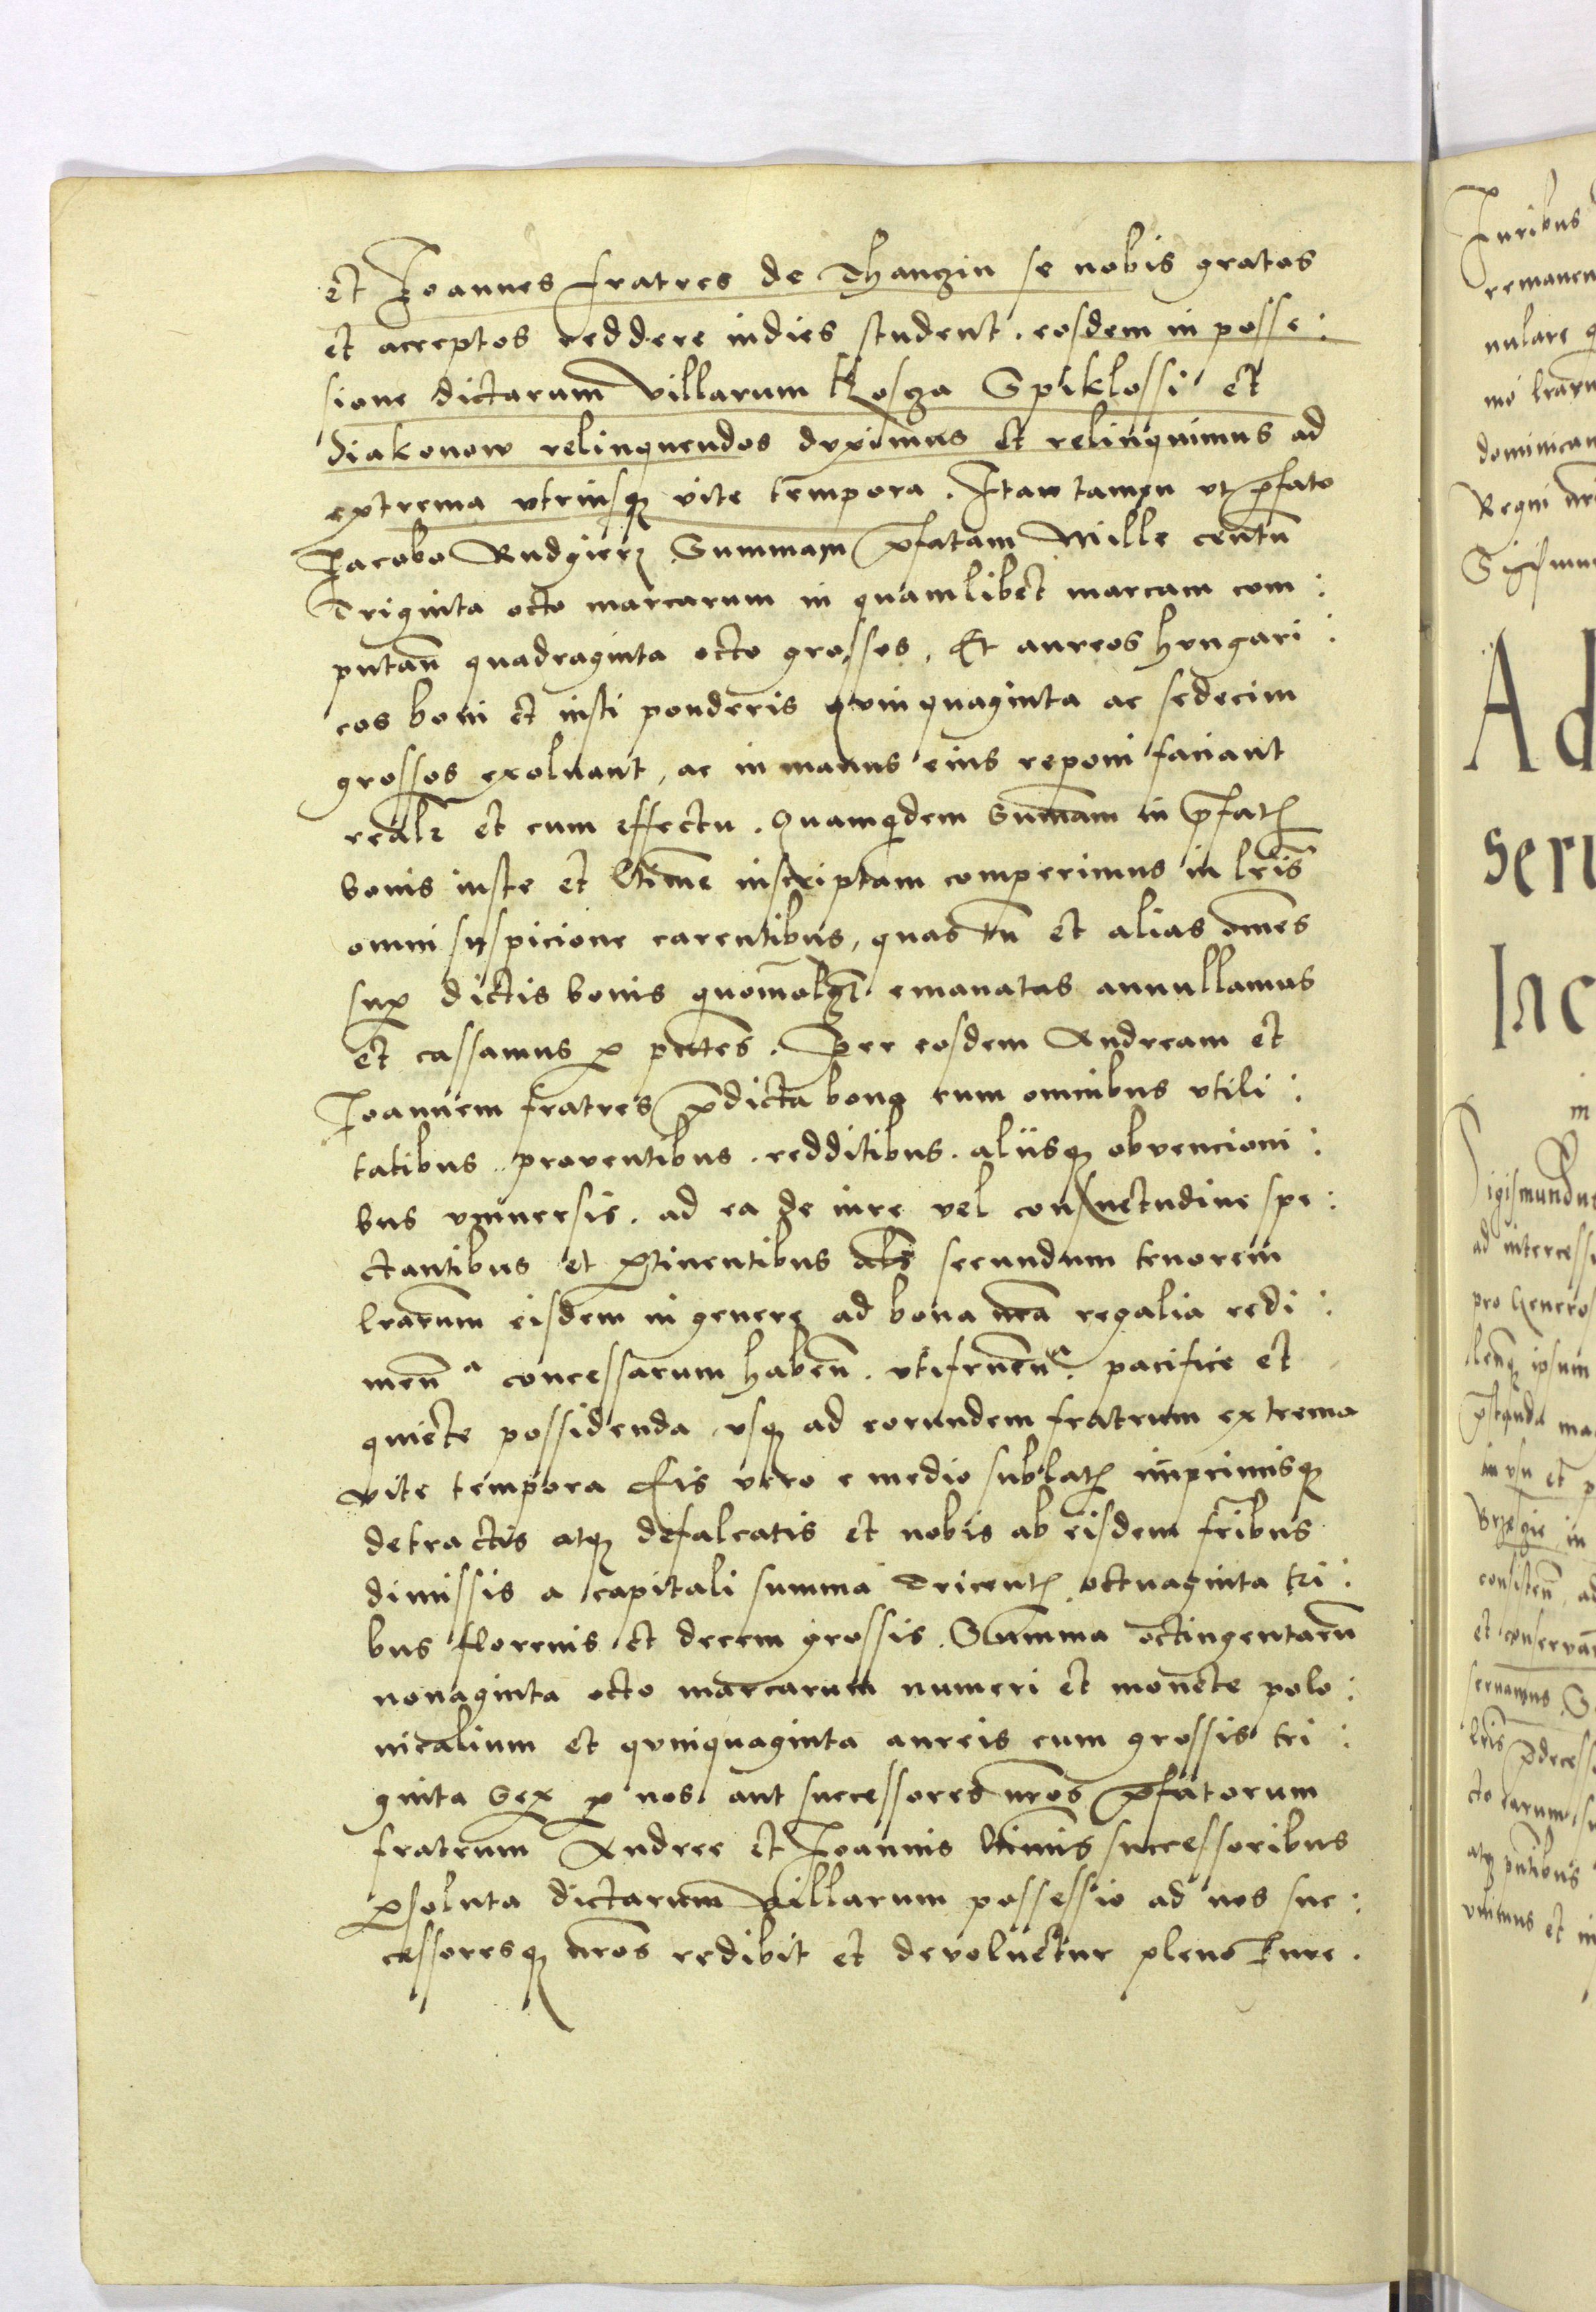 et Joannes fratres de Thanzin se nobis gratos
et acceptos reddere indies student. eosdem in posse:
sione dictarum villarum Kosza Spiklossi et
Diakonow relinquendos duximus et relinquimus ad
extrema utriusq3 vite tempora. Itaw tamen ut p̄fato
Jacobo Rudgierz Summam p̄fatam Mille centū
Triginta octo marcarum in quamlibet marcam com:
putan̄ quadraginta octo grossos, Et aureos hungari:
cos boni et iusti ponderis quinquaginta ac sedecim
grossos exolvant, ac in manus eius reponi faciant
realr et cum effectu. Quamqdem Sum̄am in p̄fatꝭ
bonis iuste et l̄time inscriptam comperimus in l̄ris
omni suspicione carentibus, quas tn̄ et alias om̄es
suꝑ dictis bonis quomōlꝫt emanatas annullamus
et cassamus ꝑ pn̄tes. Per eosdem Andream et
Joannem fratres p̄dicta bona cum omnibus utili:
tatibus. proventibus. redditibus. aliisq3 obvencioni:
bus universis. ad ea de iure vel consuetudine spe:
ctantibus et ꝑtinentibus al̄s secundum tenorem
l̄rarum eisdem in genere ad bona nr̄a regalia redi:
men̄ a concessarum haben̄. utifruen̄ a. pacifice et
quiete possidenda, usq3 ad eorundem fratrum extrema
vite tempora Eis vero e medio sublatꝭ imprimisq3
detractis atq3 defalcatis et nobis ab eisdem fr̄ibus
dimissis a capitali summa Tricentꝭ octuaginta tri:
bus florenis et decem grossis. Summa octingentarū
nonaginta octo marcarum numeri et monete polo:
nicalium et quinquaginta aureis cum grossis tri:
ginta Sex ꝑ nos aut successores nr̄os p̄fatorum
fratrum Andree et Joannis l̄timis successoribus
ꝑsoluta dictarum villarum possessio ad nos suc:
cessoresq3 nr̄os redibit et devoluetur pleno Jure.
Juribus
nulare
dominican
Ad
seru
Inc
in
Sigismundus
ad intercess
pro Generos
ipsum
in usu et p
in
consisten̄, ad
et conservan̄
servamus. S
l̄ris p̄decess
atq3 pn̄tibus